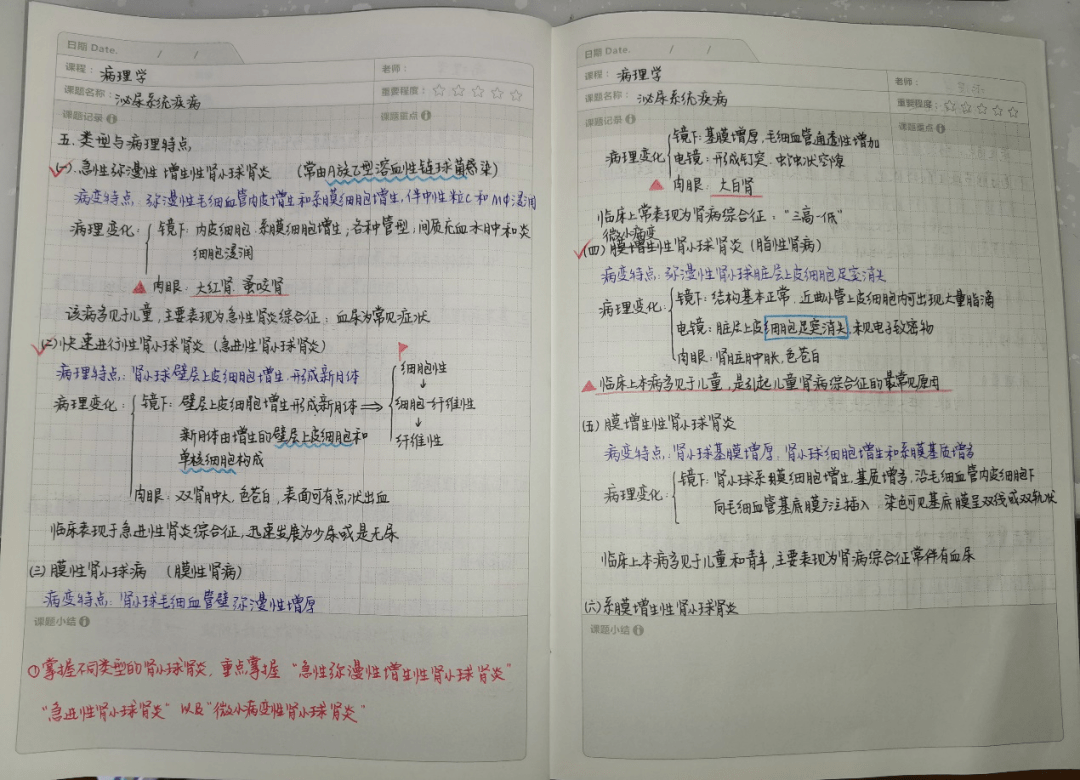 日期 Date. / /
课程： 病理学
老师：
课题名称： 泌尿系统疾病
重要程度： ☆ ☆ ☆ ☆ ☆
课题记录
课题重点
五. 类型与病理特点
(一). 急性弥漫性增生性肾小球肾炎 （常由A族乙型溶血性链球菌感染）
病变特点：弥漫性毛细血管内皮增生和系膜细胞增生，伴中性粒C和MΦ浸润
病理变化： 镜下：内皮细胞. 系膜细胞增生；各种管型，间质充血水肿和炎
细胞浸润
肉眼：大红肾. 蚤咬肾
该病多见于儿童，主要表现为急性肾炎综合征；血尿为常见症状
(二) 快速进行性肾小球肾炎（急进性肾小球肾炎）
病理特点：肾小球壁层上皮细胞增生. 形成新月体
病理变化： 镜下：壁层上皮细胞增生形成新月体 ⇒
细胞性
↓
细胞-纤维性
↓
纤维性
新月体由增生的壁层上皮细胞和
单核细胞构成
肉眼：双肾肿大，色苍白，表面可有点状出血
临床表现于急进性肾炎综合征，迅速发展为少尿或是无尿
(三) 膜性肾小球病 （膜性肾病）
病变特点：肾小球毛细血管壁弥漫性增厚
课题小结
①掌握不同类型的肾小球肾炎，重点掌握“急性弥漫性增生性肾小球肾炎”
“急进性肾小球肾炎” 以及“微小病变性肾小球肾炎”
日期 Date. / /
课程： 病理学
老师：
课题名称： 泌尿系统疾病
重要程度： ☆ ☆ ☆ ☆ ☆
课题记录
课题重点
病理变化 镜下：基膜增厚，毛细血管通透性增加
电镜：形成钉突. 虫蚀状空隙
肉眼：大白肾
临床上常表现为肾病综合征：“三高一低”
微小病变
(四) 膜增生性肾小球肾炎（脂性肾病）
病变特点：弥漫性肾小球脏层上皮细胞足突消失
病理变化： 镜下：结构基本正常. 近曲小管上皮细胞内可出现大量脂滴
电镜：脏层上皮细胞足突消失，未见电子致密物
肉眼：肾脏肿胀，色苍白
临床上本病多见于儿童，是引起儿童肾病综合征的最常见原因
(五) 膜增生性肾小球肾炎
病变特点：肾小球基膜增厚. 肾小球细胞增生和系膜基质增多
病理变化： 镜下：肾小球系膜细胞增生，基质增多，沿毛细血管内皮细胞下
向毛细血管基底膜方注插入. 染色可见基底膜呈双线或双轨状
临床上本病多见于儿童和青年，主要表现为肾病综合征常伴有血尿
(六) 系膜增生性肾小球肾炎
课题小结